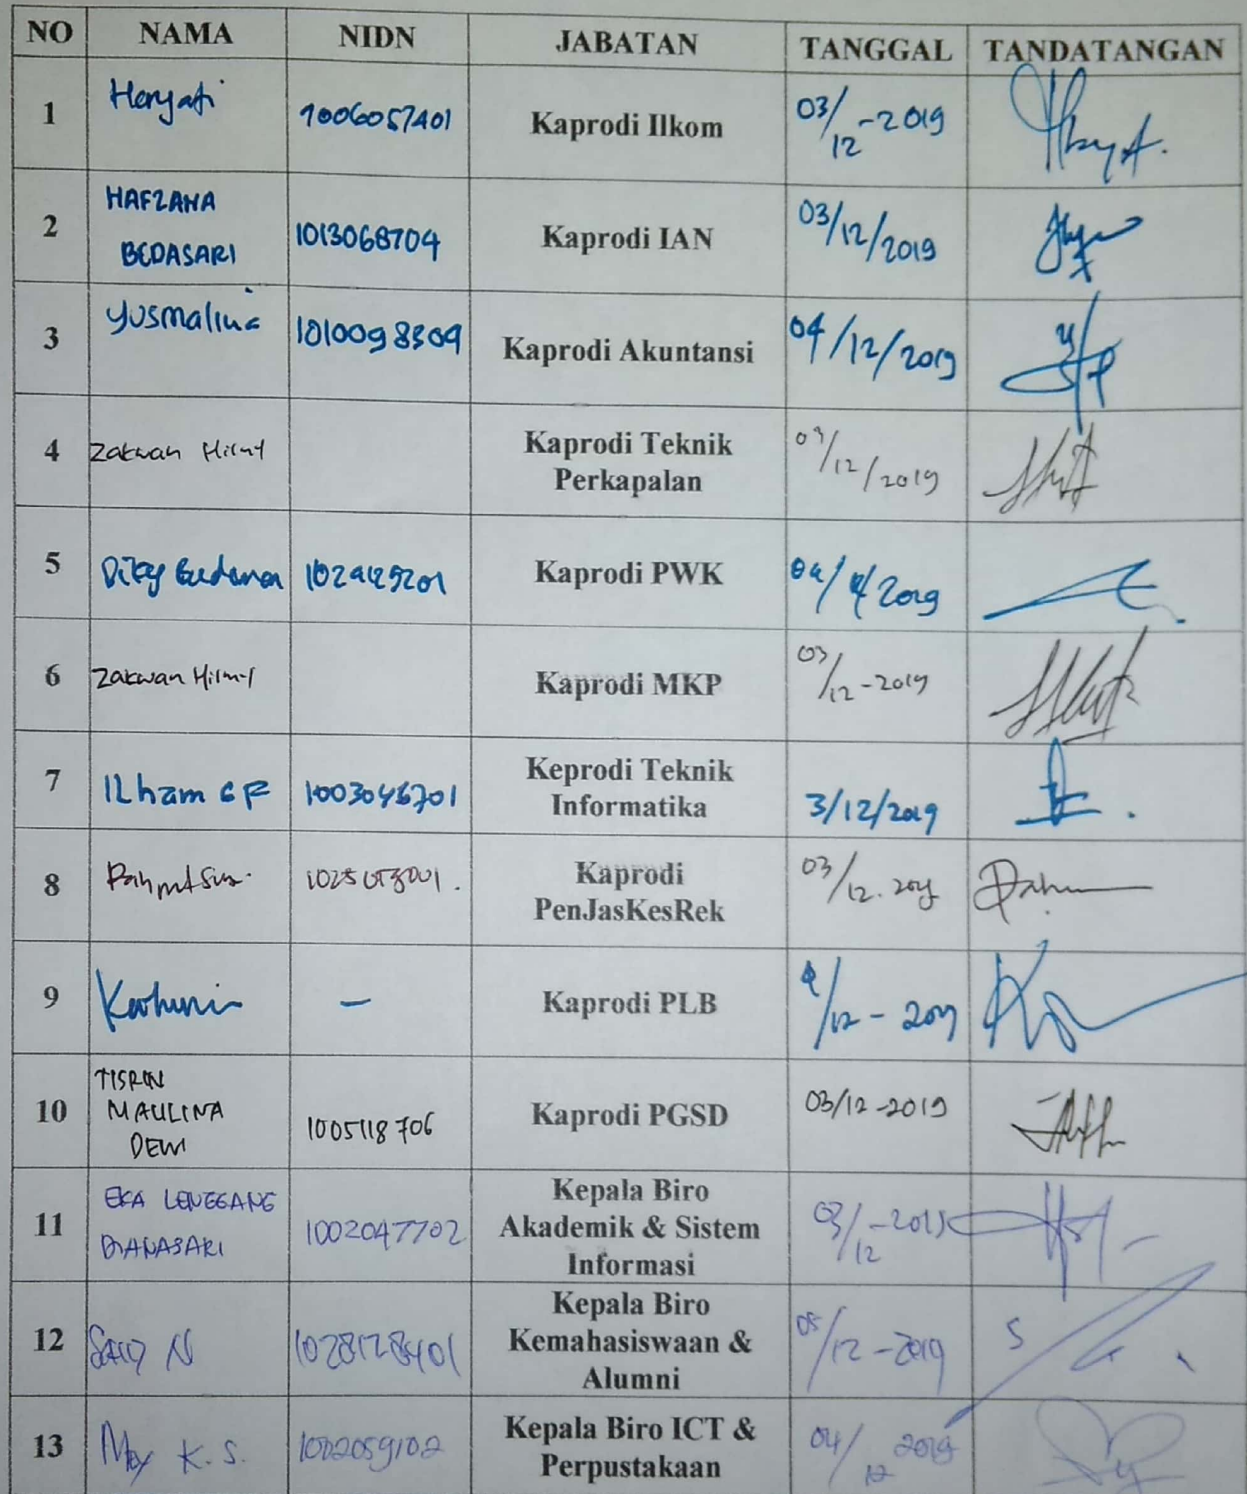 NO NAMA NIDN JABATAN TANGGAL TANDATANGAN
1 Heryati 1006057401 Kaprodi Ilkom 03/12-2019
2 HAFZANA BEDASARI 1013068704 Kaprodi IAN 03/12/2019
3 Yusmalina 1010098309 Kaprodi Akuntansi 04/12/2019
4 Zakwan Hilmy Kaprodi Teknik
Perkapalan
03/12/2019
5 Kaprodi PWK
6 Zakwan Hilmy Kaprodi MKP 03/12-2019
7 Ilham Keprodi Teknik
Informatika
3/12/2019
8 Kaprodi
PenJasKesRek
03/12.2019
9 – Kaprodi PLB
10 TISRIN
MAULINA
DEWI
1005118706 Kaprodi PGSD 03/12-2019
11 EKA LENGGANG
DIANASARI
1002047702 Kepala Biro
Akademik & Sistem
Informasi
03/12-2019
12 Said N 1028128401 Kepala Biro
Kemahasiswaan &
Alumni
/12-2019
13 K.S. 1002059102 Kepala Biro ICT &
Perpustakaan
04/12 2019